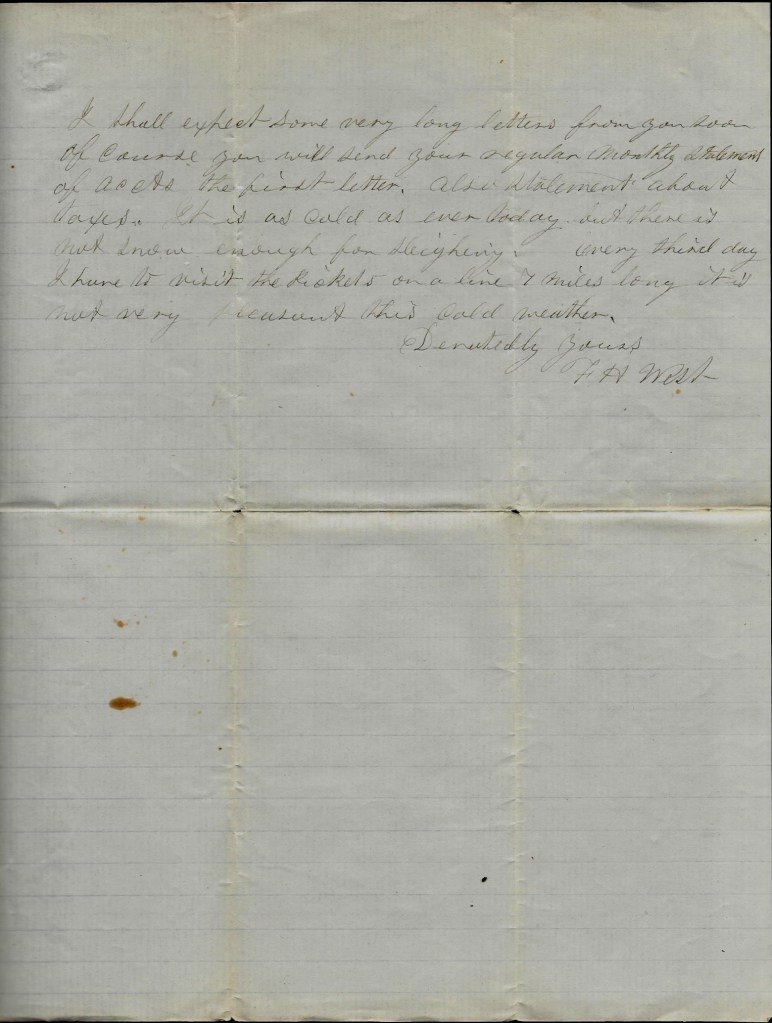 I shall expect some very long letters from you soon
Of course you will send your regular monthly statement
of accts the first letter. Also statement about
taxes. It is as cold as ever today but there is
not snow enough for sleighing. every third day
I have to visit the Pickets on a line 7 miles long it is
not very pleasant this cold weather.
Devotedly yours
F H West